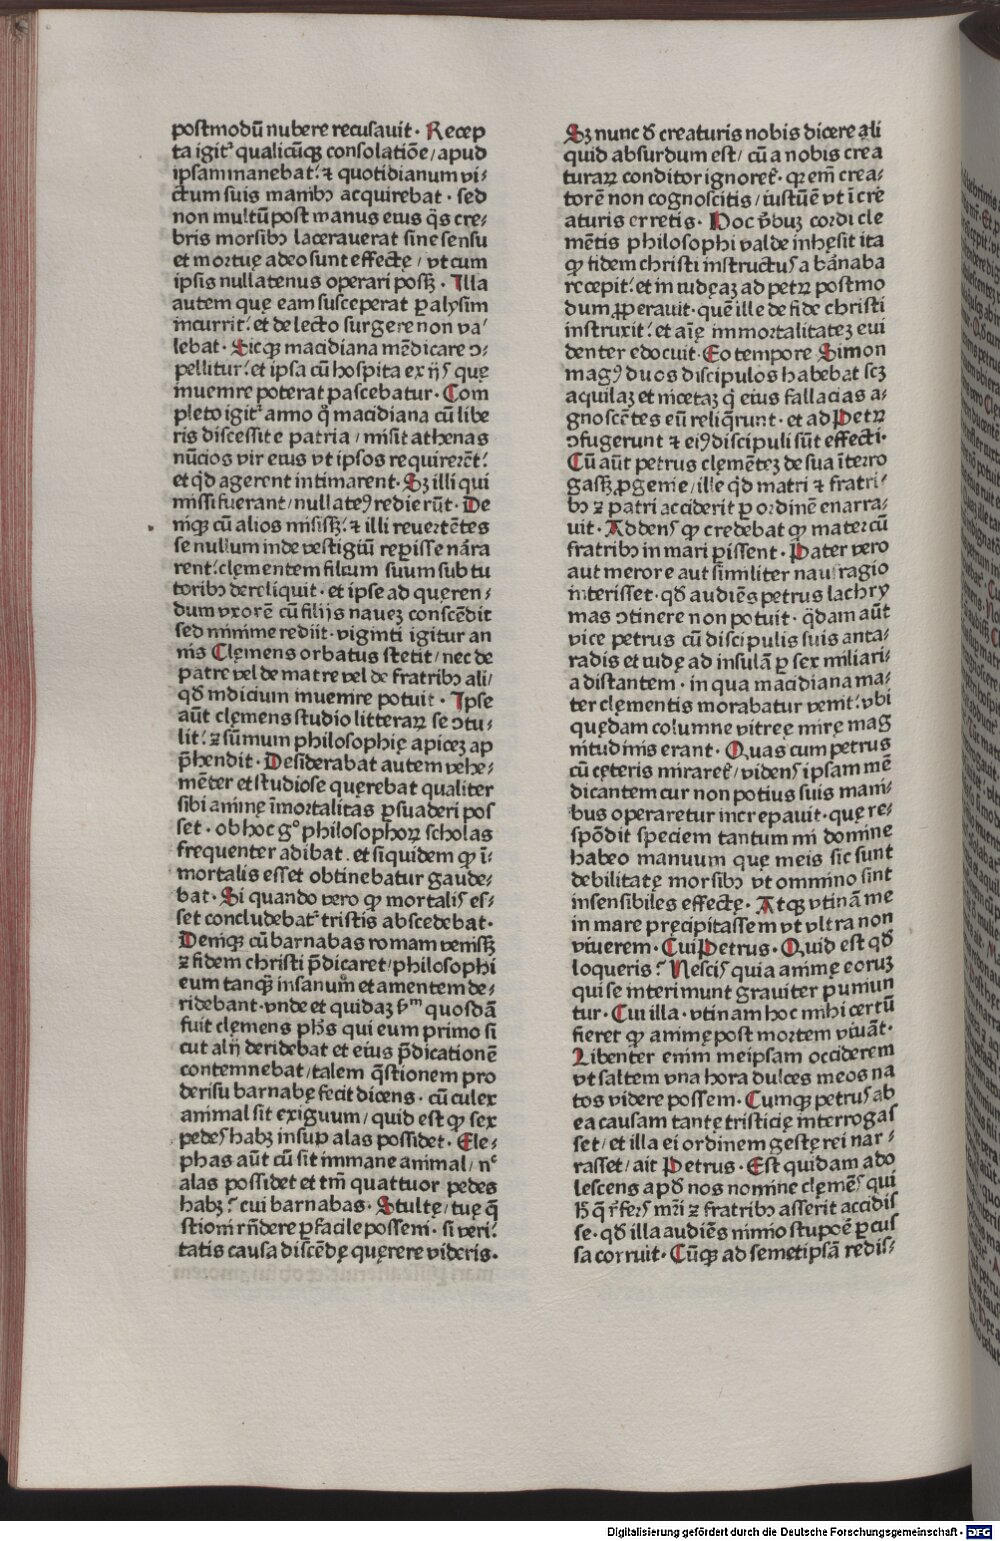 postmodū nubere recusauit · Recep
ta igit᷑ qualicūqꝫ consolatiōe / apud
ipsam manebat ⁝ ⁊ quotidianum vi⸗
ctum suis manibꝰ acquirebat · sed
non multū post manus eius q̄s cre⸗
bris morsibꝰ lacerauerat sine sensu
et mortuę adeo sunt effectę / vt cum
ipsis nullatenus operari possꝫ · Illa
autem quę eam susceperat ꝑalysim
incurrit ⁝ et de lecto surgere non va⸗
lebat · Sicqꝫ macidiana mēdicare ↄ⸗
pellitur ⁝ et ipsa cū hospita ex ijs quę
inuenire poterat pascebatur · Com
pleto igit᷑ anno q̄ macidiana cū libe
ris discessit e patria / misit athenas
nūcios vir eius vt ipsos requirerēt ⁝
et qd̄ agerent intimarent · Sꝫ illi qui
missi fuerant / nullateꝰ redierūt · De
niqꝫ cū alios misissꝫ ⁝ ⁊ illi reuertētes
se nullum inde vestigiū reꝑisse nāra
rent ⁝ clementem filium suum sub tu
toribꝰ dereliquit · et ipse ad queren⸗
dum vxorē cū filijs naueꝫ conscēdit
sed minime rediit · viginti igitur an
nis Clęmens orbatus stetit / nec de
patre vel de matre vel de fratribꝰ ali⸗
qd̄ indicium inuenire potuit · Ipse
aūt clęmens studio litteraꝝ se ↄtu⸗
lit ⁝ ⁊ sūmum philosophię apiceꝫ ap
p̄hendit · Desiderabat autem vehe⸗
mēter et studiose quęrebat qualiter
sibi animę īmortalitas ꝑsuaderi pos
set · ob hoc gͦ philosophoꝝ scholas
frequenter adibat · et siquidem ꝙ ī⸗
mortalis esset obtinebatur gaude⸗
bat · Si quando vero ꝙ mortalis es⸗
set concludebat᷑ tristis abscedebat ·
Deniqꝫ cū barnabas romam venissꝫ
⁊ fidem christi p̄dicaret / philosophi
eum tanqꝫ insanum et amentem de⸗
ridebant · vnde et quidaꝫ ẜᵐ quosdā
fuit clęmens ph̄s qui eum primo si
cut alij deridebat et eius p̄dicationē
contemnebat / talem q̄stionem pro
derisu barnabę fecit dicens · cū culex
animal sit exiguum / quid est ꝙ sex
pedes habꝫ insuꝑ alas possidet · Ele⸗
phas aūt cū sit immane animal / nᶜ
alas possidet et tm̄ quattuor pedes
habꝫ ⸮ cui barnabas · Stultę / tuę q̄
stioni rn̄dere ꝑfacile possem · si veri⸗
tatis causa discēdę quęrere videris ·
Sꝫ nunc d̄ creaturis nobis dicere ali
quid absurdum est / cū a nobis crea
turaꝝ conditor ignoreᷓ · qꝛ em̄ crea⸗
torē non cognoscitis / iustūē vt ī cre
aturis erretis · Hoc v̄buꝫ cordi cle
mētis philosophi valde inhęsit ita
ꝙ fidem christi instructus a bārnaba
recepit ⁝ et in iudęaꝫ ad petrꝝ postmo
dum ꝓꝑerauit · quē ille de fide christi
instruxit ⁝ et aīę immortalitateꝫ eui
denter edocuit · Eo tempore Simon
magꝰ duos discipulos habebat scꝫ
aquilaꝫ et nicetaꝫ q̇ eius fallacias a⸗
gnoscētes eū reliq̄runt · et ad Petrꝝ
ↄfugerunt ⁊ eiꝰ discipuli sūt effecti ·
Cū aūt petrus clęmēteꝫ de sua īterro
gassꝫ ꝓgenie / ille qd̄ matri ⁊ fratri⸗
bꝰ ⁊ patri acciderit ꝑ ordinē enarra⸗
uit · Addens ꝙ credebat ꝙ mater cū
fratribꝰ in mari ꝑissent · Pater vero
aut merore aut similiter naufragio
interisset · qd̄ audiēs petrus lachry
mas ↄtinere non potuit · q̄dam aūt
vice petrus cū discipulis suis anta⸗
radis et iudę ad insulā ꝑ sex miliari⸗
a distantem · in qua macidiana ma⸗
ter clęmentis morabatur venit ⁝ vbi
quędam columne vitreę mirę mag
nitudinis erant · Quas cum petrus
cū cęteris mirareᷓ / videns ipsam mē
dicantem cur non potius suis mani⸗
bus operaretur increpauit · quę re⸗
spōdit speciem tantum mi domine
habeo manuum quę meis sic sunt
debilitatę morsibꝰ vt omnino sint
insensibiles effectę · Atqꝫ vtinā me
in mare pręcipitassem vt vltra non
viuerem · Cui Petrus · Quid est qd̄
loqueris ⸮ Nescis quia animę eoruꝫ
qui se interimunt grauiter puniun
tur · Cui illa · vtinam hoc mihi certū
fieret ꝙ animę post mortem viuāt ·
Libenter enim meipsam occiderem
vt saltem vna hora dulces meos na
tos videre possem · Cumqꝫ petrus ab
ea causam tantę tristicię interrogas
set / et illa ei ordinem gestę rei nar⸗
rasset / ait Petrus · Est quidam ado
lescens apd̄ nos nomine clęmēs qui
h̄ q̄ r̄fers mr̄i ⁊ fratribꝰ asserit accidis
se · qd̄ illa audiēs nimio stupoē ꝑcus
sa corruit · Cūqꝫ ad semetipsā redis⸗
Digitalisierung gefördert durch die Deutsche Forschungsgemeinschaft · DFG